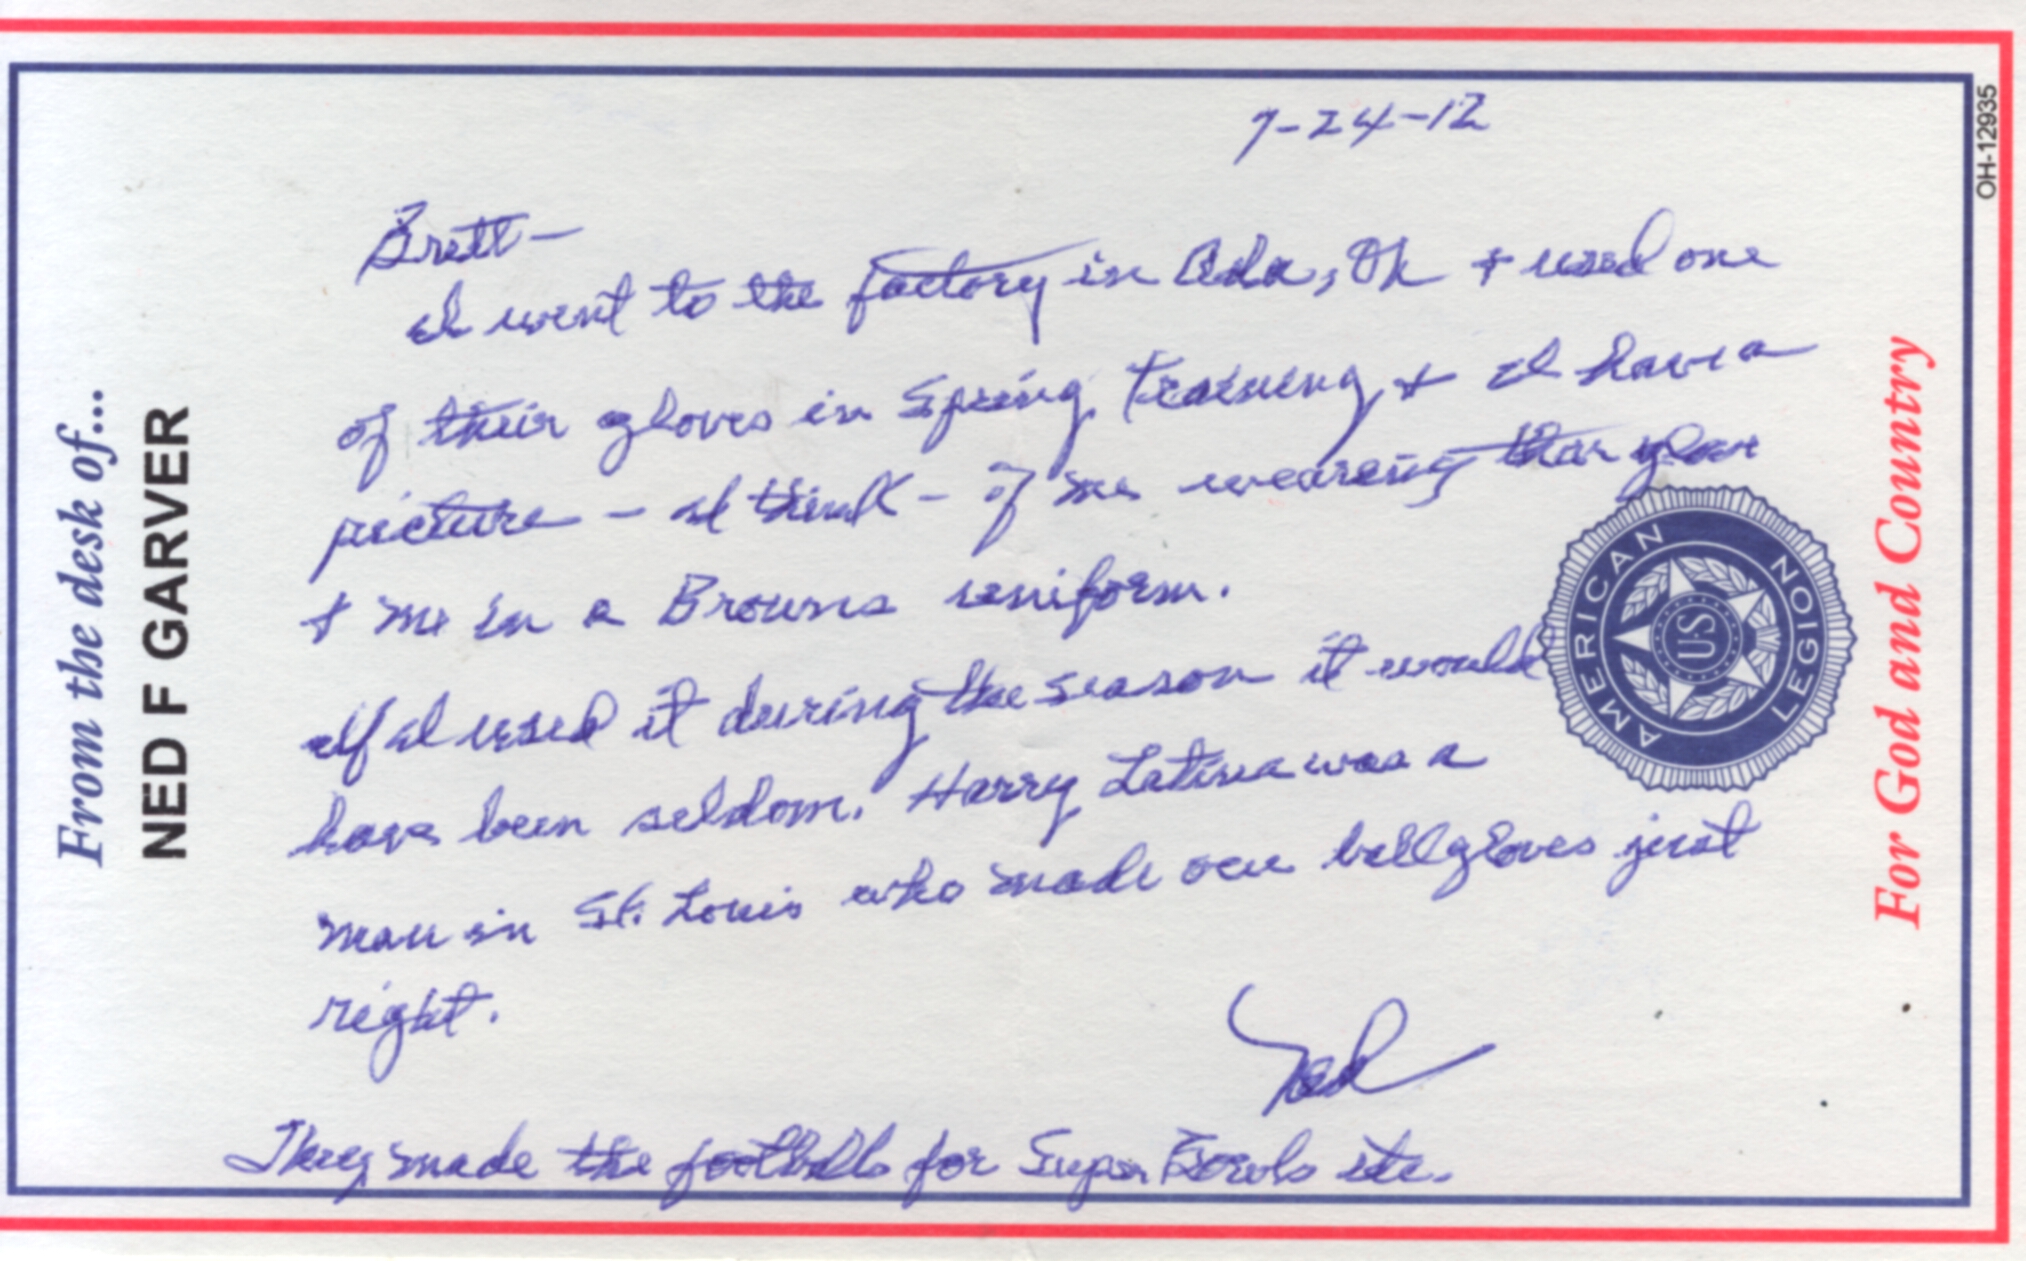 OH-12935
From the desk of...
NED F GARVER
For God and Country
AMERICAN LEGION
U.S
7-24-12
Brett-
I went to the factory in Ada, Oh + used one
of their gloves in Spring Training, + I have a
picture - I think - of me wearing that glove
+ me in a Browns uniform.
If I used it during the season it would
have been seldom. Harry Latina was a
man in St. Louis who made our ballgloves just
right.
Ned
They made the footballs for Super Bowls etc.